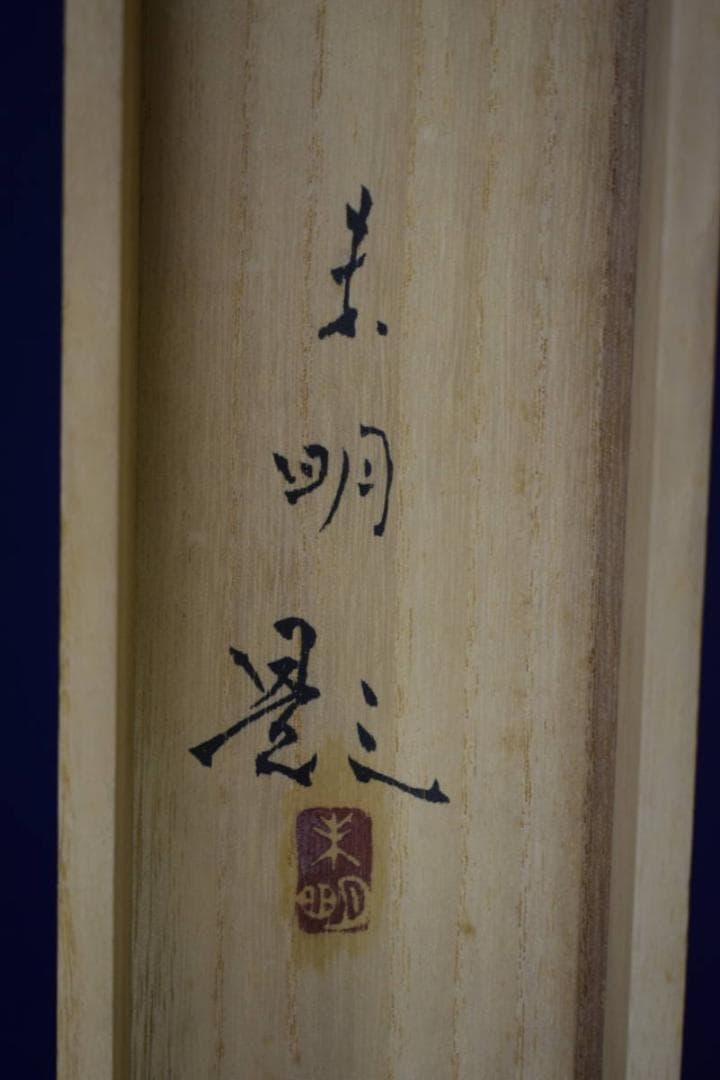 未明
題之
未明